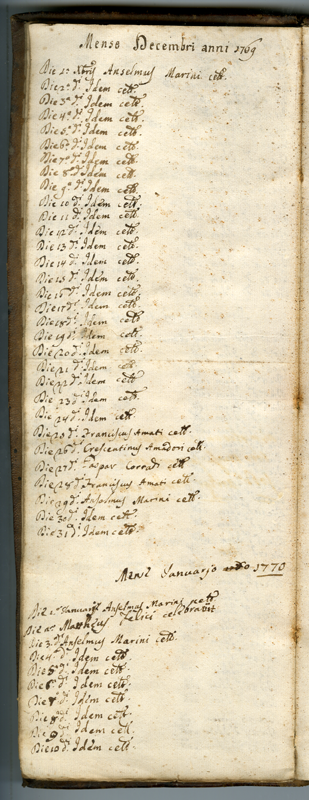 Mense Decembri anni 1769
Die 1.ª Xbris Anselmus Marini celt.
Die 2.ª d.ⁱ Idem celt.
Die 3.ª d.ⁱ Idem celt.
Die 4.ª d.ⁱ Idem celt.
Die 5.ª d.ⁱ Idem celt.
Die 6.ª d.ⁱ Idem celt.
Die 7.ª d.ⁱ Idem celt.
Die 8.ª d.ⁱ Idem celt.
Die 9.ª d.ⁱ Idem celt.
Die 10 d.ⁱ Idem celt.
Die 11 d.ⁱ Idem celt.
Die 12 d.ⁱ Idem celt.
Die 13 d.ⁱ Idem celt.
Die 14 d.ⁱ Idem celt.
Die 15 d.ⁱ Idem celt.
Die 16 d.ⁱ Idem celt.
Die 17 d.ⁱ Idem celt.
Die 18 d.ⁱ Idem celt.
Die 19 d.ⁱ Idem celt.
Die 20 d.ⁱ Idem celt.
Die 21 d.ⁱ Idem celt.
Die 22 d.ⁱ Idem celt.
Die 23 d.ⁱ Idem celt.
Die 24 d.ⁱ Idem celt.
Die 25 d.ⁱ Franciscus Amati celt.
Die 26 d.ⁱ Crescentinus Amadori celt.
Die 27 d.ⁱ Caspar Corradi celt.
Die 28 d.ⁱ Franciscus Amati celt.
Die 29 d.ⁱ Anselmus Marini celt.
Die 30 d.ⁱ Idem celt.
Die 31 d.ⁱ Idem celt.
Mense Januario 1770
Die 1.ª Januarij Anselmus Marini celt.
Die 2.ª Mattheus Felici celebravit
Die 3.ª d.ⁱ Anselmus Marini celt.
Die 4.ª d.ⁱ Idem celt.
Die 5.ª d.ⁱ Idem celt.
Die 6.ª d.ⁱ Idem celt.
Die 7 d.ⁱ Idem celt.
Die 8 d.ⁱ Idem celt.
Die 9 d.ⁱ Idem celt.
Die 10 d.ⁱ Idem celt.